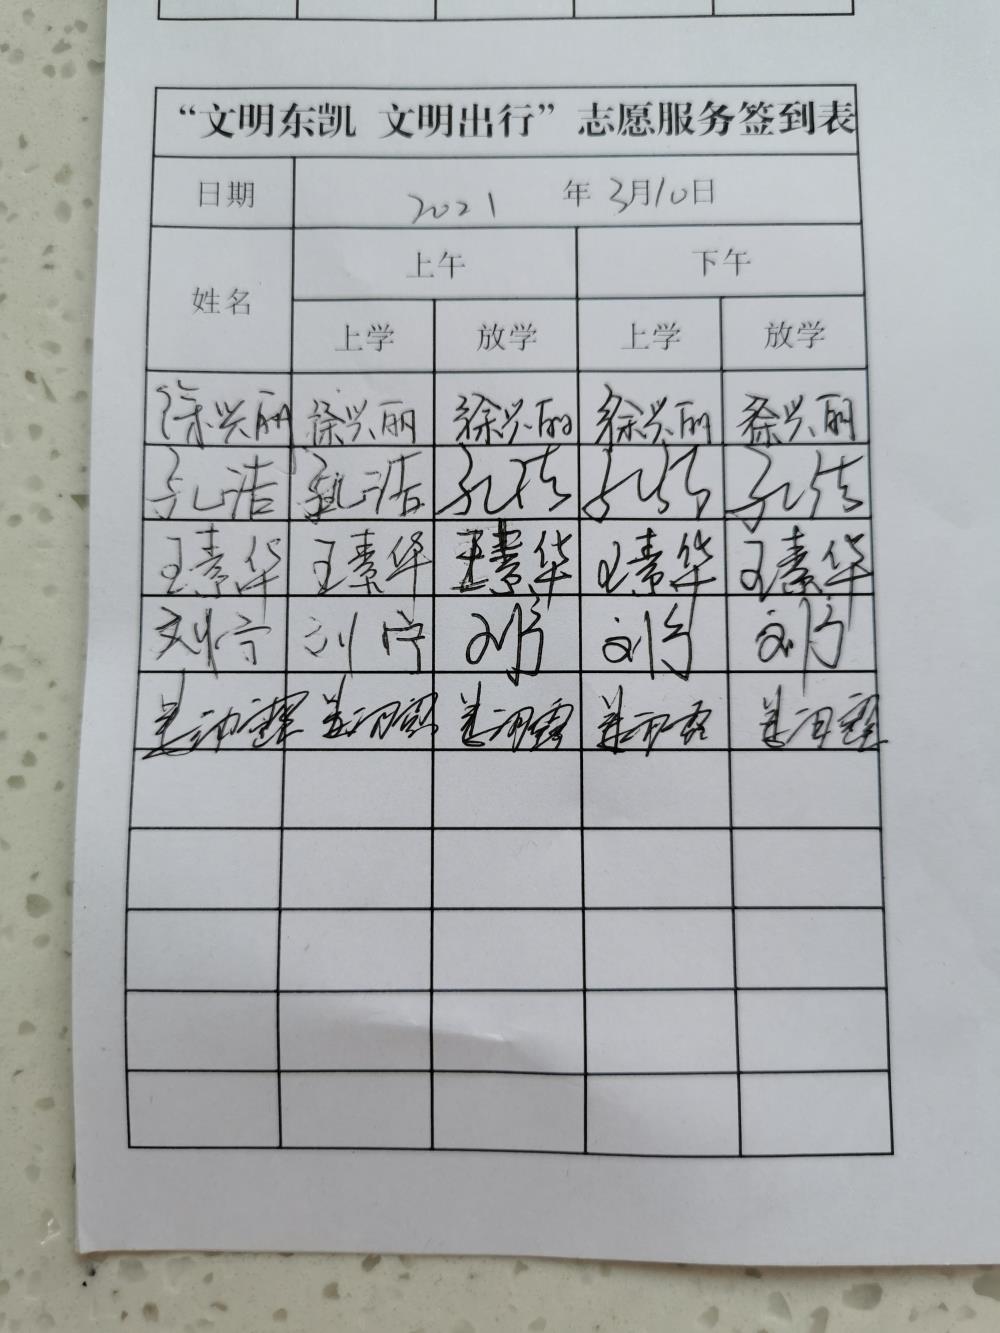 “文明东凯 文明出行”志愿服务签到表
日期 2021 年 3月10日
姓名 上午 下午
上学 放学 上学 放学
徐兴丽 徐兴丽 徐兴丽 徐兴丽 徐兴丽
孔洁 孔洁 孔洁 孔洁 孔洁
王素华 王素华 王素华 王素华 王素华
刘宁 刘宁 刘宁 刘宁 刘宁